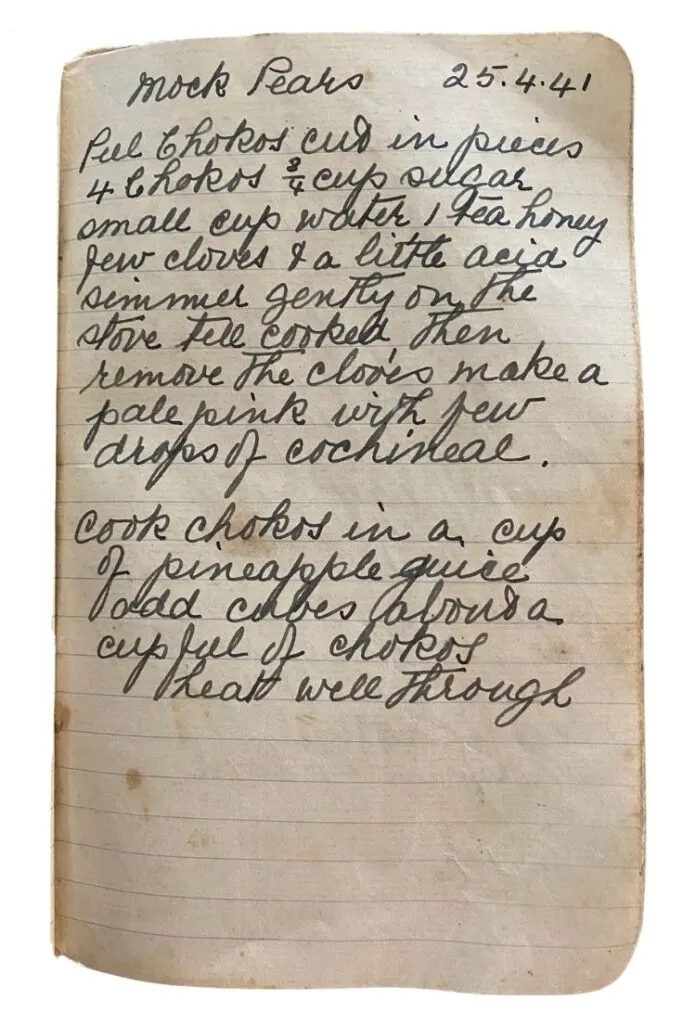 Mock Pears 25.4.41
Peel Chokos cut in pieces
4 Chokos 3/4 cup sugar
small cup water 1 tea honey
few cloves & a little acid
simmer gently on the
stove till cooked, then
remove the cloves make a
pale pink with few
drops of cochineal.
Cook chokos in a cup
of pineapple guice
add cubes about a
cupful of chokos
heat well through